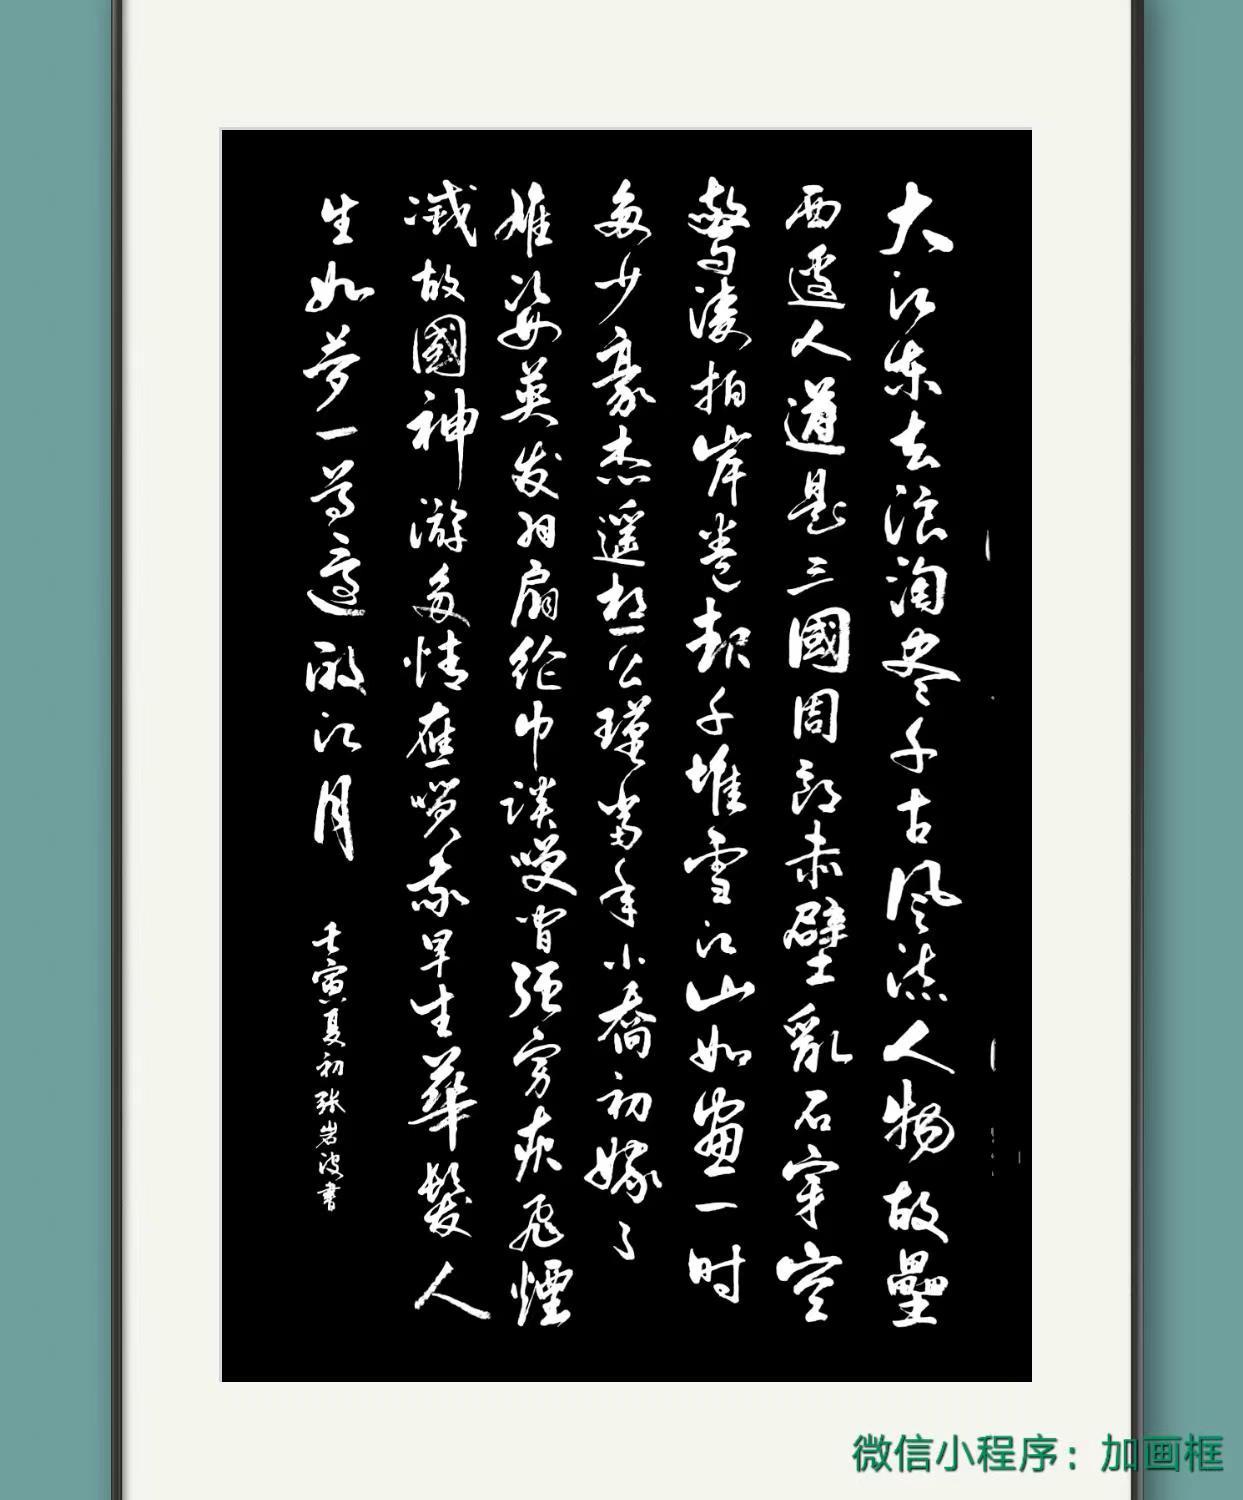 大江东去浪淘尽千古风流人物故壘
西邊人道是三國周郎赤壁亂石穿空
驚濤拍岸卷起千堆雪江山如畫一时
多少豪杰遥想公瑾當年小喬初嫁了
雄姿英发羽扇纶巾談咲間强虏灰飛煙
滅故國神游多情應咲我早生華髮人
生如夢一尊還酹江月
壬寅夏初张岩波書
微信小程序：加画框